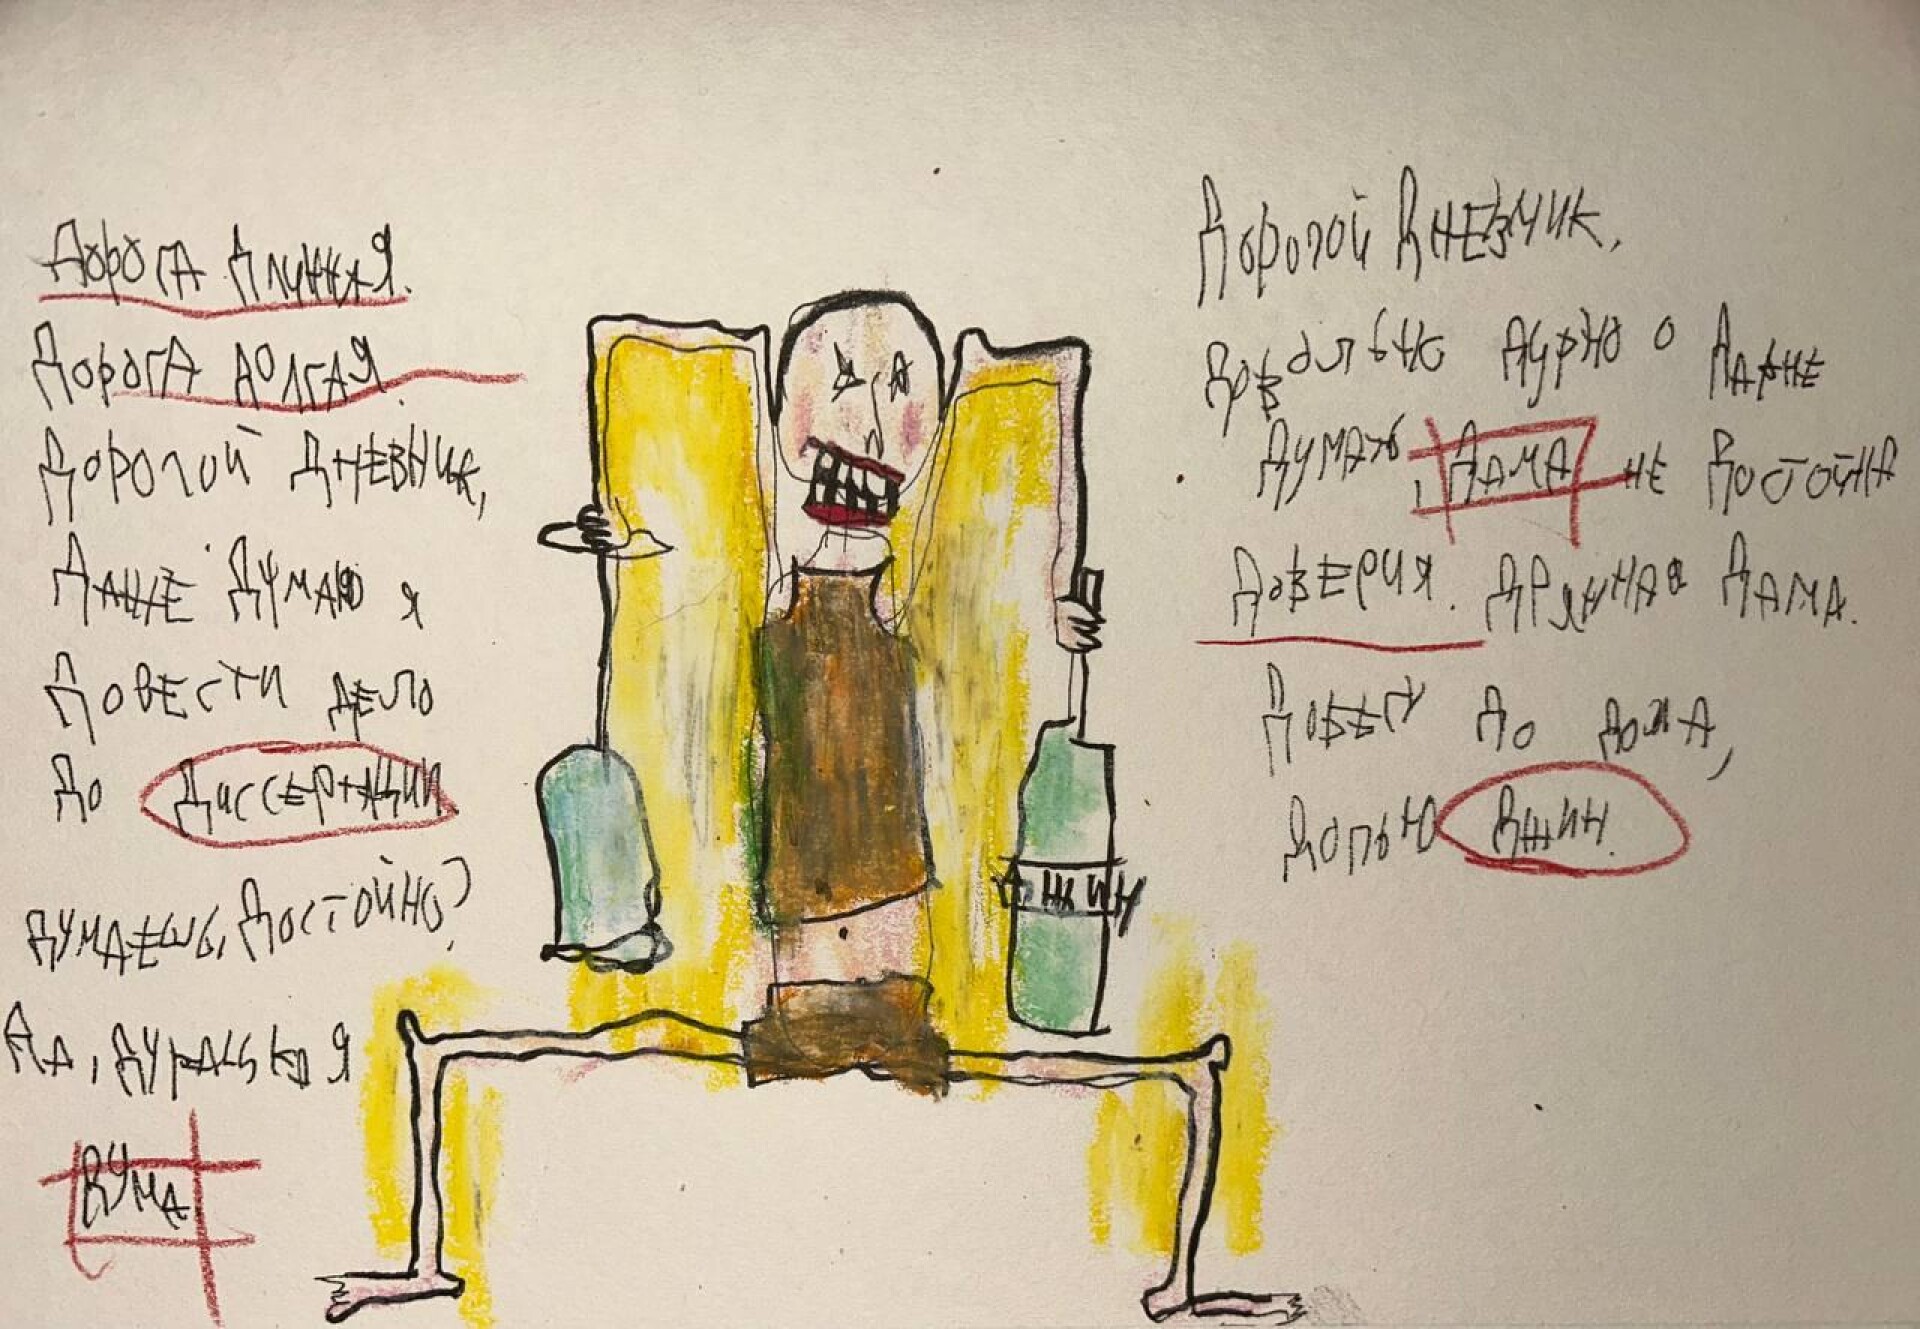 Дорога длинная.
Дорога долгая.
Дорогой дневник,
Даже думаю я
Довести дело
До диссертации
думаешь, достойно?
Да, дурацкая
Дума.
Дорогой дневник,
довольно дурно о даме
думать, дама не достойна
доверия. Дрянная дама.
Добегу до дома,
допью джин.
ДА
ДЖИН